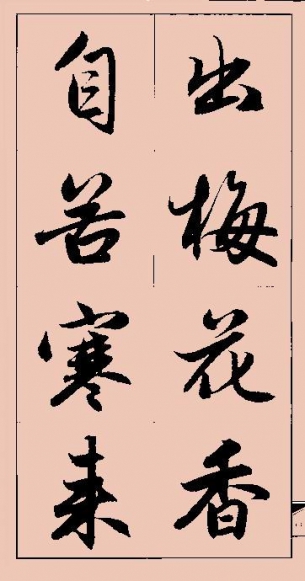 出梅花香
自苦寒来